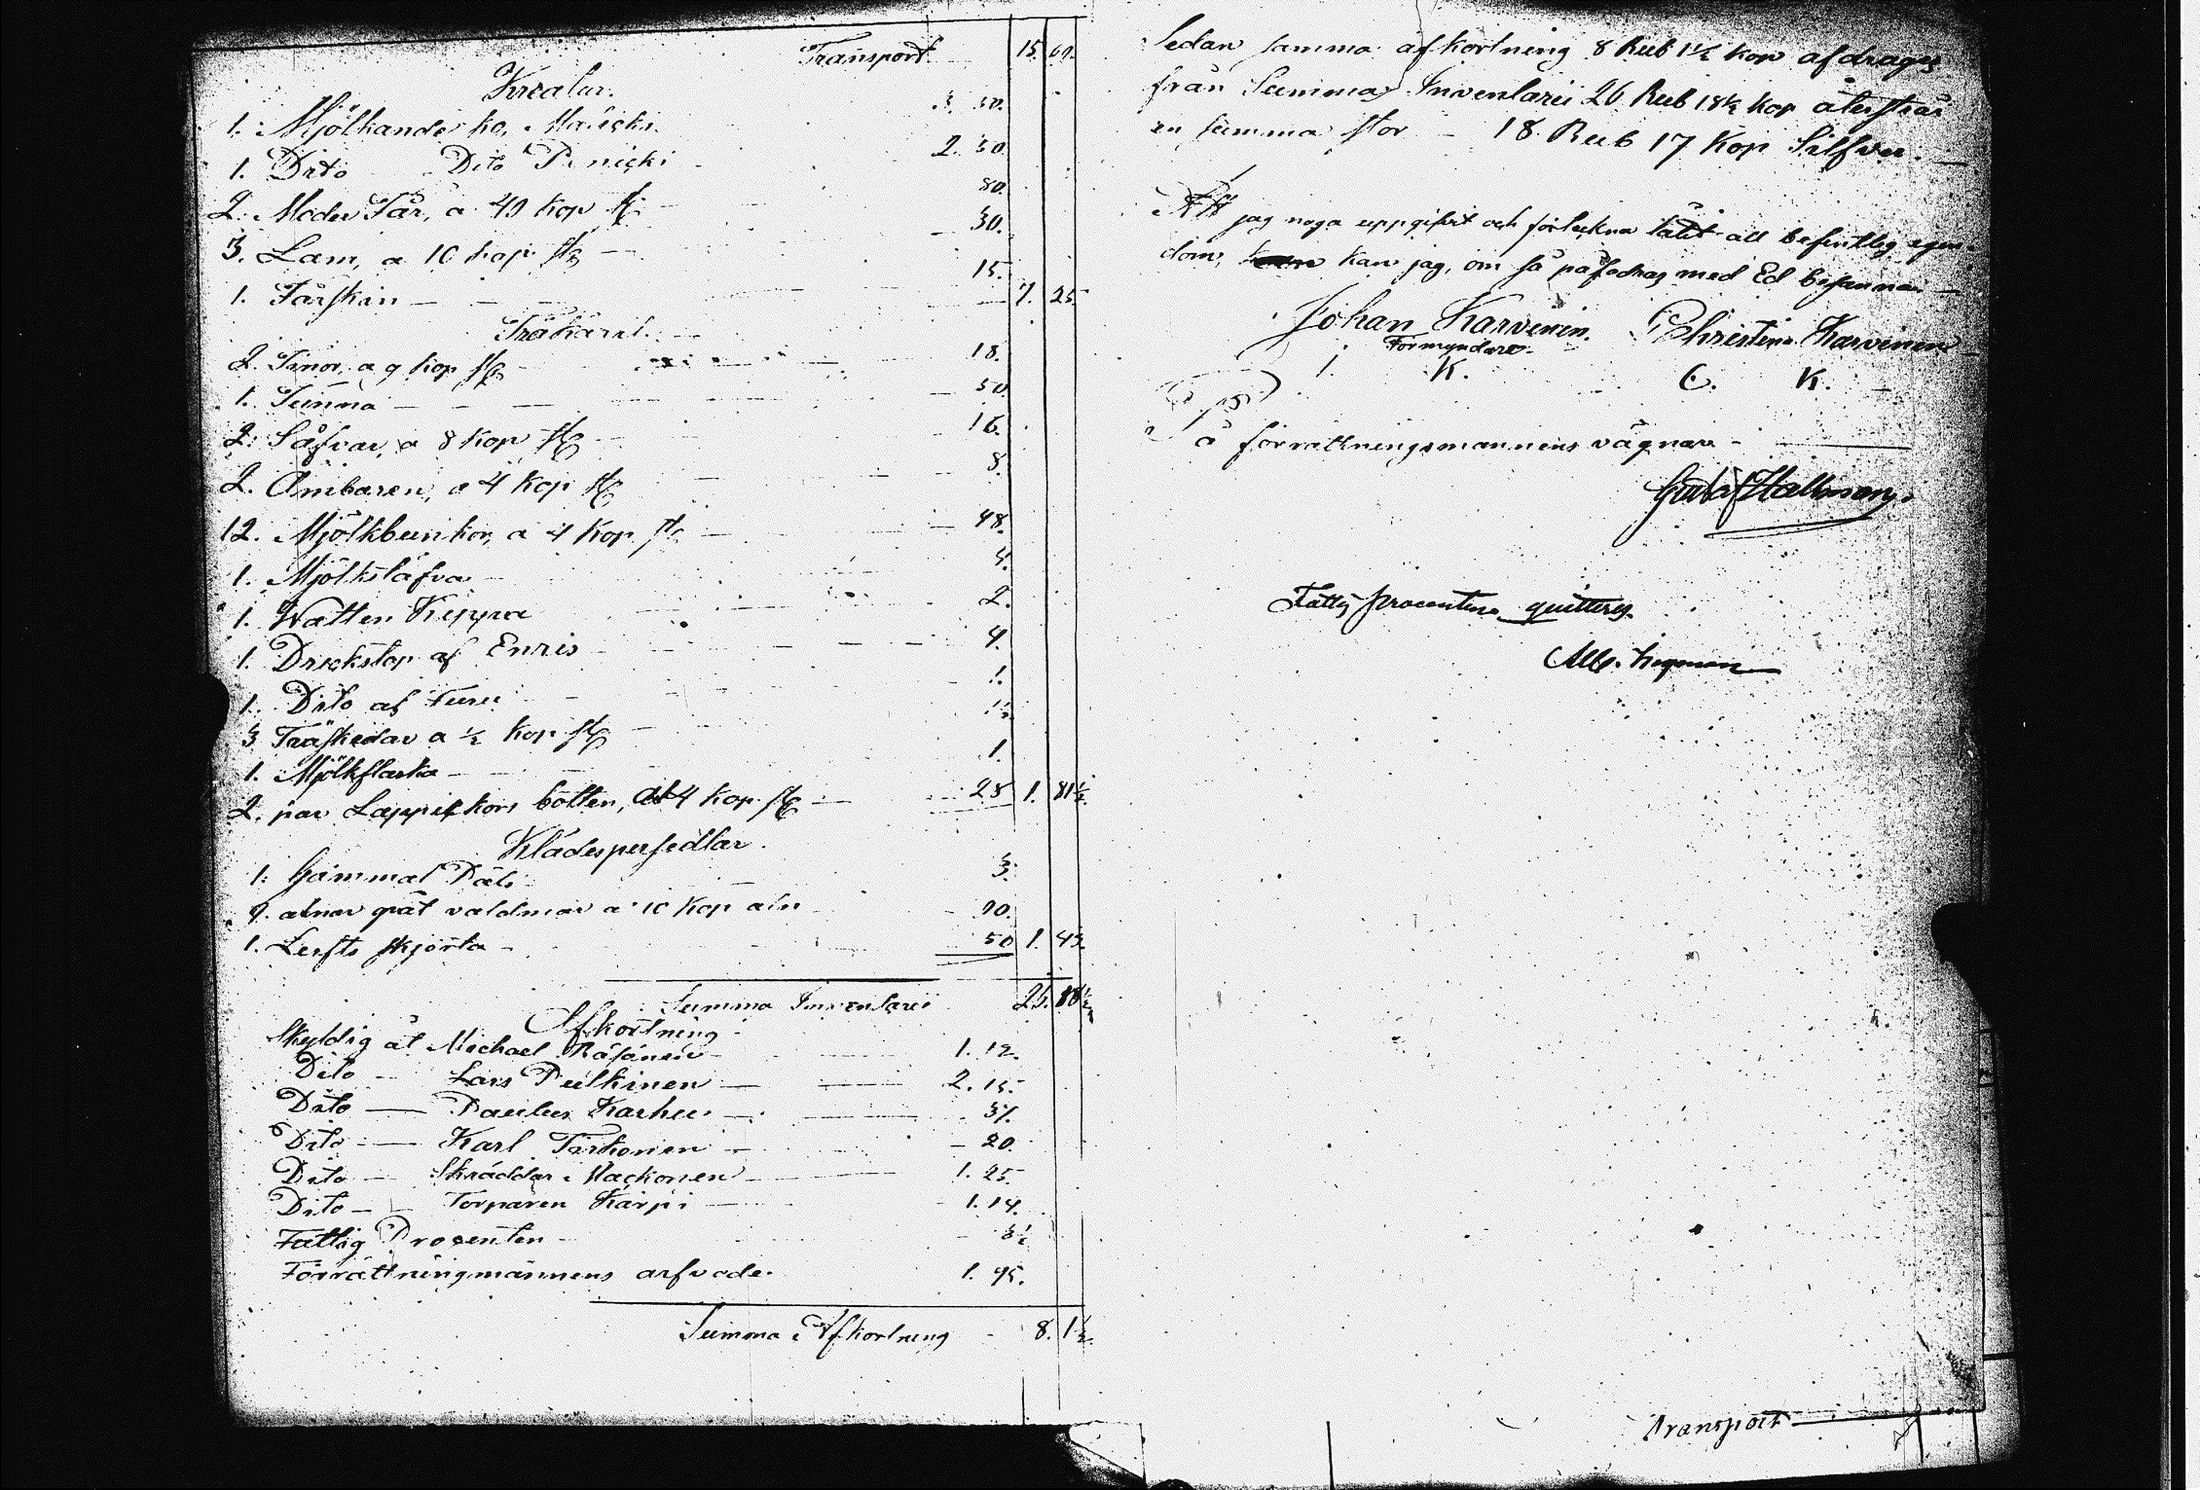 Transport 15. 67.
Kreatur.
1. Mjölkande ko, 3. 50.
1. Dito Dito 2. 50.
2. Moder Får, a 40 kop st. 80.
3. Lam, a 10 kop st. 30.
1. Fårskin 15. 7. 25
Träkäril.
2. Tinor, a 9 kop st. 18.
1. Tunna 50
2. Såfvar, a 8 kop st. 16.
2. Ämbaren, a 4 kop st. 8.
12. Mjölkbunkor, a 4 kop st. 48.
1. Mjölkstäfva 4.
1. Watten Kippa 2.
1. Drickstop af Enris 4.
1. Dito af Furu 1.
3 Träskedar a ½ kop st. 1½
1. Mjölkflaska 1.
2. par bötten, a 4 kop st. 28 1. 81½
Klädespersedlar.
1. Gammal Päls 3.
9. alnar gråt valdmar a 10 kop aln 90.
1. Lerfts skjorta 50 1. 43.
Summa Inventarii 26. 18½
Afkortning
Skyldig åt Michael Räsänen 1. 12.
Dito Lars Pulkinen 2. 15.
Dito Paulus Karhu 37.
Dito Karl Tarkonen 20.
Dito Skräddar Mackonen 1. 25.
Dito Torparen Karpi 1. 14.
Fattig Procenten 3½
Förrättningmännens arfvode 1. 95.
Summa Afkortning 8. 1½
Sedan samma afkortning 8 Rub 1½ kop afdrages
från Summa Inventarii 26 Rub 18½ kop återstår
en summa stor 18 Rub 17 Kop Silfver.
Att jag noga uppgifvit och förteckna låtit all befintlig egen-
dom, kan jag, om så påfodras med Ed besanna
Johan Karvinen. Christina Karvinen
Förmyndare
J. K. C. K.
å förrättningsmannens vägnar
Gustaf Hallman
Fattig procenten quitteras.
Transport